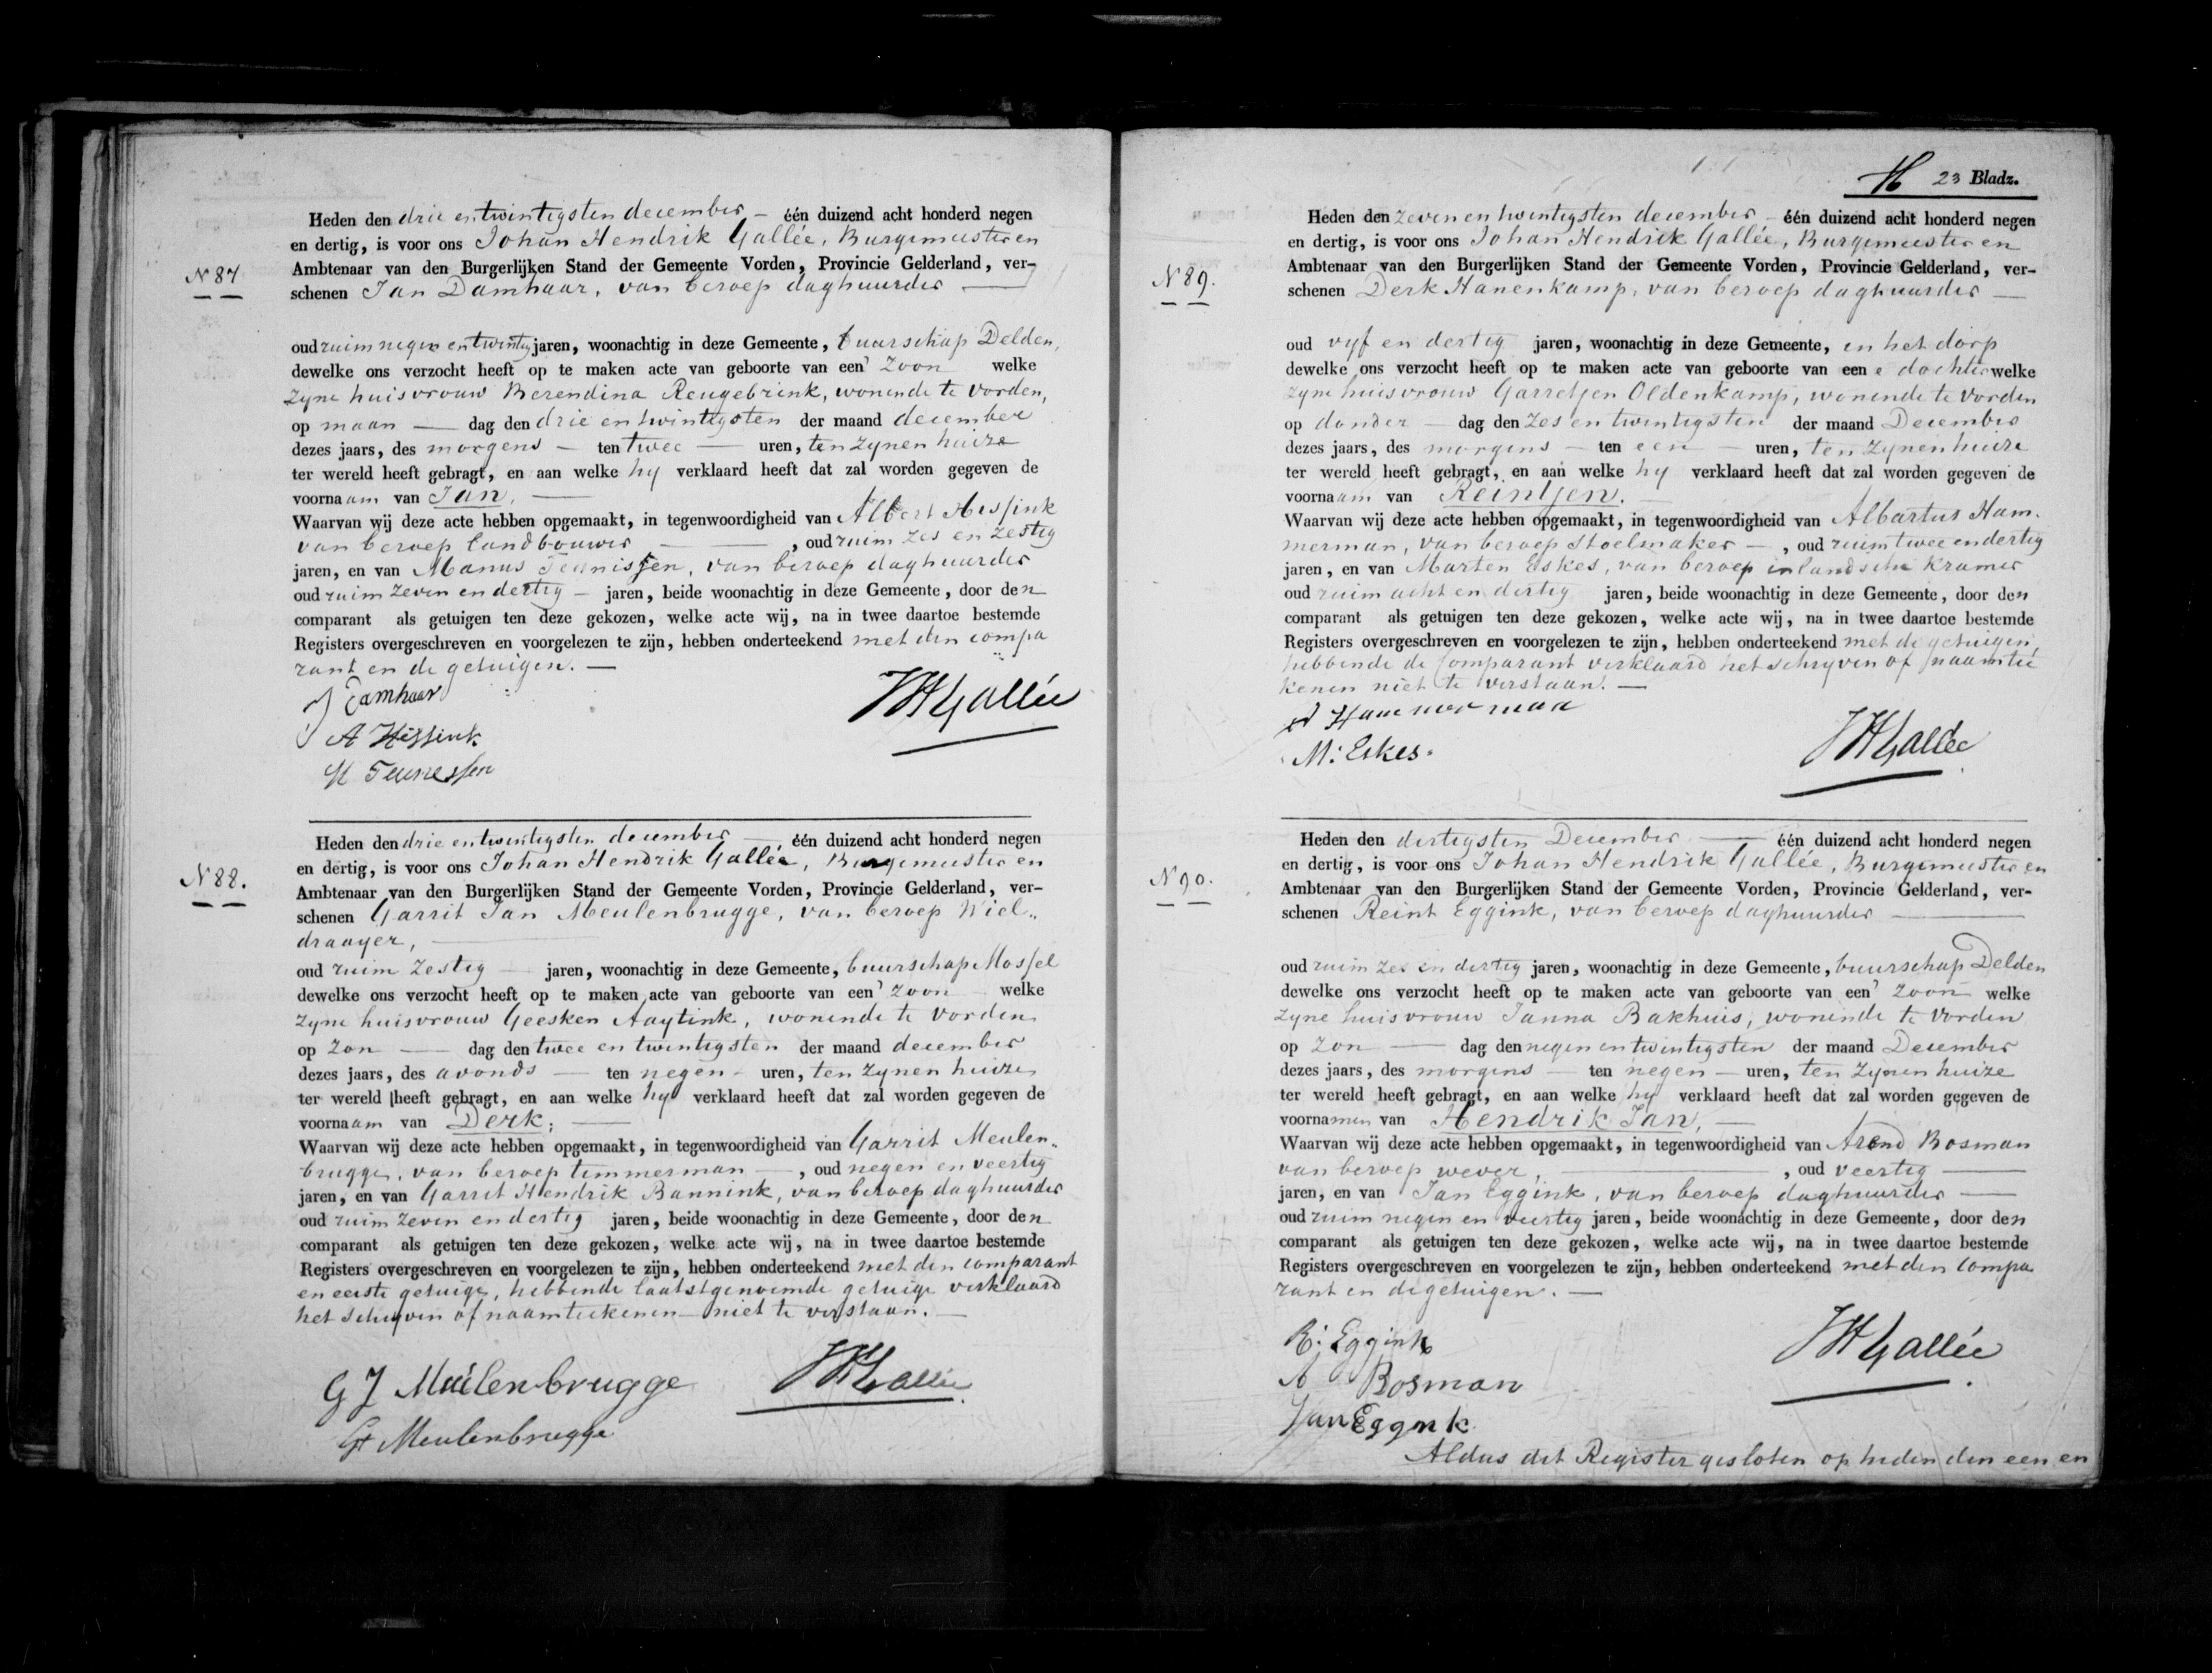 Heden den drie en twintigsten december — één duizend acht honderd negen
en dertig, is voor ons Johan Hendrik Gallée, Burgemeester en
N 87
Ambtenaar van den Burgerlijken Stand der Gemeente Vorden, Provincie Gelderland, ver-
schenen Jan Damhaar, van beroep daghuurder —
oud ruim negen en twintig jaren, woonachtig in deze Gemeente, buurschap Delden,
dewelke ons verzocht heeft op te maken acte van geboorte van een' zoon welke
zyne huisvrouw Berendina Reugebrink, wonende te Vorden,
op maan — dag den drie en twintigsten der maand december
dezes jaars, des morgens — ten twee — uren, ten zynen huize
ter wereld heeft gebragt, en aan welke hy verklaard heeft dat zal worden gegeven de
voornaam van Jan. —
Waarvan wij deze acte hebben opgemaakt, in tegenwoordigheid van Albert Hessink
van beroep landbouwer — , oud ruim zes en zestig
jaren, en van Manus Teunissen, van beroep daghuurder
oud ruim zeven en dertig — jaren, beide woonachtig in deze Gemeente, door den
comparant als getuigen ten deze gekozen, welke acte wij, na in twee daartoe bestemde
Registers overgeschreven en voorgelezen te zijn, hebben onderteekend met den compa
rant en de getuigen. —
J Damhaar
JHGallée
A Hessink
M Teunessen
Heden den drie en twintigsten december — één duizend acht honderd negen
en dertig, is voor ons Johan Hendrik Gallée, Burgemeester en
N 88.
Ambtenaar van den Burgerlijken Stand der Gemeente Vorden, Provincie Gelderland, ver-
schenen Garrit Jan Meulenbrugge, van beroep Wiel„
draayer, —
oud ruim zestig — jaren, woonachtig in deze Gemeente, buurschap Mossel
dewelke ons verzocht heeft op te maken acte van geboorte van een' zoon welke
zyne huisvrouw Geesken Aaytink, wonende te Vorden
op zon — dag den twee en twintigsten der maand december
dezes jaars, des avonds — ten negen - uren, ten zynen huize
ter wereld heeft gebragt, en aan welke hy verklaard heeft dat zal worden gegeven de
voornaam van Derk; —
Waarvan wij deze acte hebben opgemaakt, in tegenwoordigheid van Garrit Meulen„
brugge, van beroep timmerman — , oud negen en veertig
jaren, en van Garrit Hendrik Bannink, van beroep daghuurder
oud ruim zeven en dertig jaren, beide woonachtig in deze Gemeente, door den
comparant als getuigen ten deze gekozen, welke acte wij, na in twee daartoe bestemde
Registers overgeschreven en voorgelezen te zijn, hebben onderteekend met den comparant
en eerste getuige, hebbende laatstgenoemde getuige verklaard
het schryven of naamteekenen niet te verstaan. —
GJ Meulenbrugge JHGallée
Gt Meulenbrugge
23 Bladz.
Heden den zeven en twintigsten december - één duizend acht honderd negen
en dertig, is voor ons Johan Hendrik Gallée, Burgemeester en
N 89.
Ambtenaar van den Burgerlijken Stand der Gemeente Vorden, Provincie Gelderland, ver-
schenen Derk Hanenkamp, van beroep daghuurder —
oud vyf en dertig jaren, woonachtig in deze Gemeente, in het dorp
dewelke ons verzocht heeft op te maken acte van geboorte van eene dochter welke
zyne huisvrouw Garretjen Oldenkamp, wonende te Vorden
op donder — dag den zes en twintigsten der maand December
dezes jaars, des morgens — ten een — uren, ten zynen huize
ter wereld heeft gebragt, en aan welke hy verklaard heeft dat zal worden gegeven de
voornaam van Reintjen. —
Waarvan wij deze acte hebben opgemaakt, in tegenwoordigheid van Albartus Ham-
merman, van beroep stoelmaker — , oud ruim twee en dertig
jaren, en van Marten Eskes, van beroep inlandsche kramer
oud ruim acht en dertig jaren, beide woonachtig in deze Gemeente, door den
comparant als getuigen ten deze gekozen, welke acte wij, na in twee daartoe bestemde
Registers overgeschreven en voorgelezen te zijn, hebben onderteekend met de getuigen,
hebbende de Comparant verklaard het schryven of naamtee
kenen niet te verstaan. —
M: Eskes.
JHGallée
Heden den dertigsten December — één duizend acht honderd negen
en dertig, is voor ons Johan Hendrik Gallée, Burgemeester en
N 90.
Ambtenaar van den Burgerlijken Stand der Gemeente Vorden, Provincie Gelderland, ver-
schenen Reint Eggink, van beroep daghuurder —
oud ruim zes en dertig jaren, woonachtig in deze Gemeente, buurschap Delden
dewelke ons verzocht heeft op te maken acte van geboorte van een' zoon welke
zyne huisvrouw Janna Bakhuis, wonende te Vorden
op zon — dag den negen en twintigsten der maand December
dezes jaars, des morgens — ten negen — uren, ten zynen huize
ter wereld heeft gebragt, en aan welke hy verklaard heeft dat zal worden gegeven de
voornamen van Hendrik Jan, —
Waarvan wij deze acte hebben opgemaakt, in tegenwoordigheid van Arend Bosman
van beroep wever, — , oud veertig —
jaren, en van Jan Eggink, van beroep daghuurder —
oud ruim negen en veertig jaren, beide woonachtig in deze Gemeente, door den
comparant als getuigen ten deze gekozen, welke acte wij, na in twee daartoe bestemde
Registers overgeschreven en voorgelezen te zijn, hebben onderteekend met den Compa
rant en de getuigen. —
R: Eggink JHGallée
A Bosman
Jan Eggnk
Aldus dit Register gesloten op heden den een en